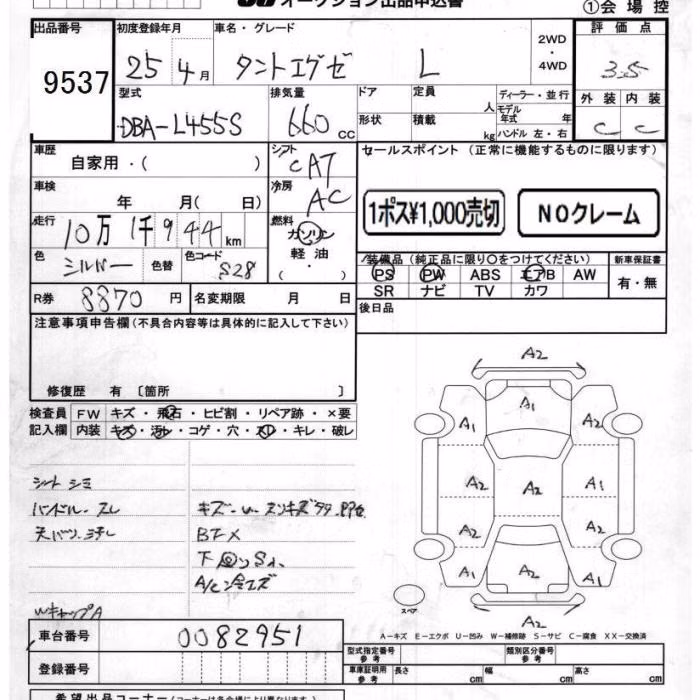 オークション出品申込書
①会場控
出品番号 初度登録年月 車名・グレード 2WD・4WD 評価点
9537 25年4月 タントエグゼ L 3.5
型式 排気量 ドア 定員 人 ディーラー・並行 外装 内装
DBA-L455S 660cc 形状 積載 kg モデル年式 年 ハンドル 左・右 C C
車歴 自家用・( ) シフト CAT セールスポイント (正常に機能するものに限ります)
車検 年 月( 日) 冷房 AC
1ポス¥1,000売切 NOクレーム
走行 10万1千944km 燃料 ガソリン 軽油 ( ・ )
色 シルバー 色替 色コード S28
装備品 (純正品に限り○をつけてください) 新車保証書
PS PW ABS エアB AW 有・無
SR ナビ TV カワ
R券 8870円 名変期限 月 日 後日品
注意事項申告欄(不具合内容等は具体的に記入して下さい)
修復歴 有 〔箇所 〕
検査員 FW キズ・飛石・ヒビ割・リペア跡・×要
記入欄 内装 キズ・汚レ・コゲ・穴・スレ・キレ・破レ
シートシミ
ハンドル・スレ キズ
BTX
下回りS
A/C
WキャップA
A2
A1
A1 A2
A2 A2 A1
A2 A2
A1 A2 A1
A2
スペア
A-キズ E-エクボ U-凹み W-補修跡 S-サビ C-腐食 XX-交換済
車台番号 0082951
型式指定番号 参考 類別区分番号 参考
登録番号 車庫証明用 参考 長さ cm 幅 cm 高さ cm
希望出品コーナー